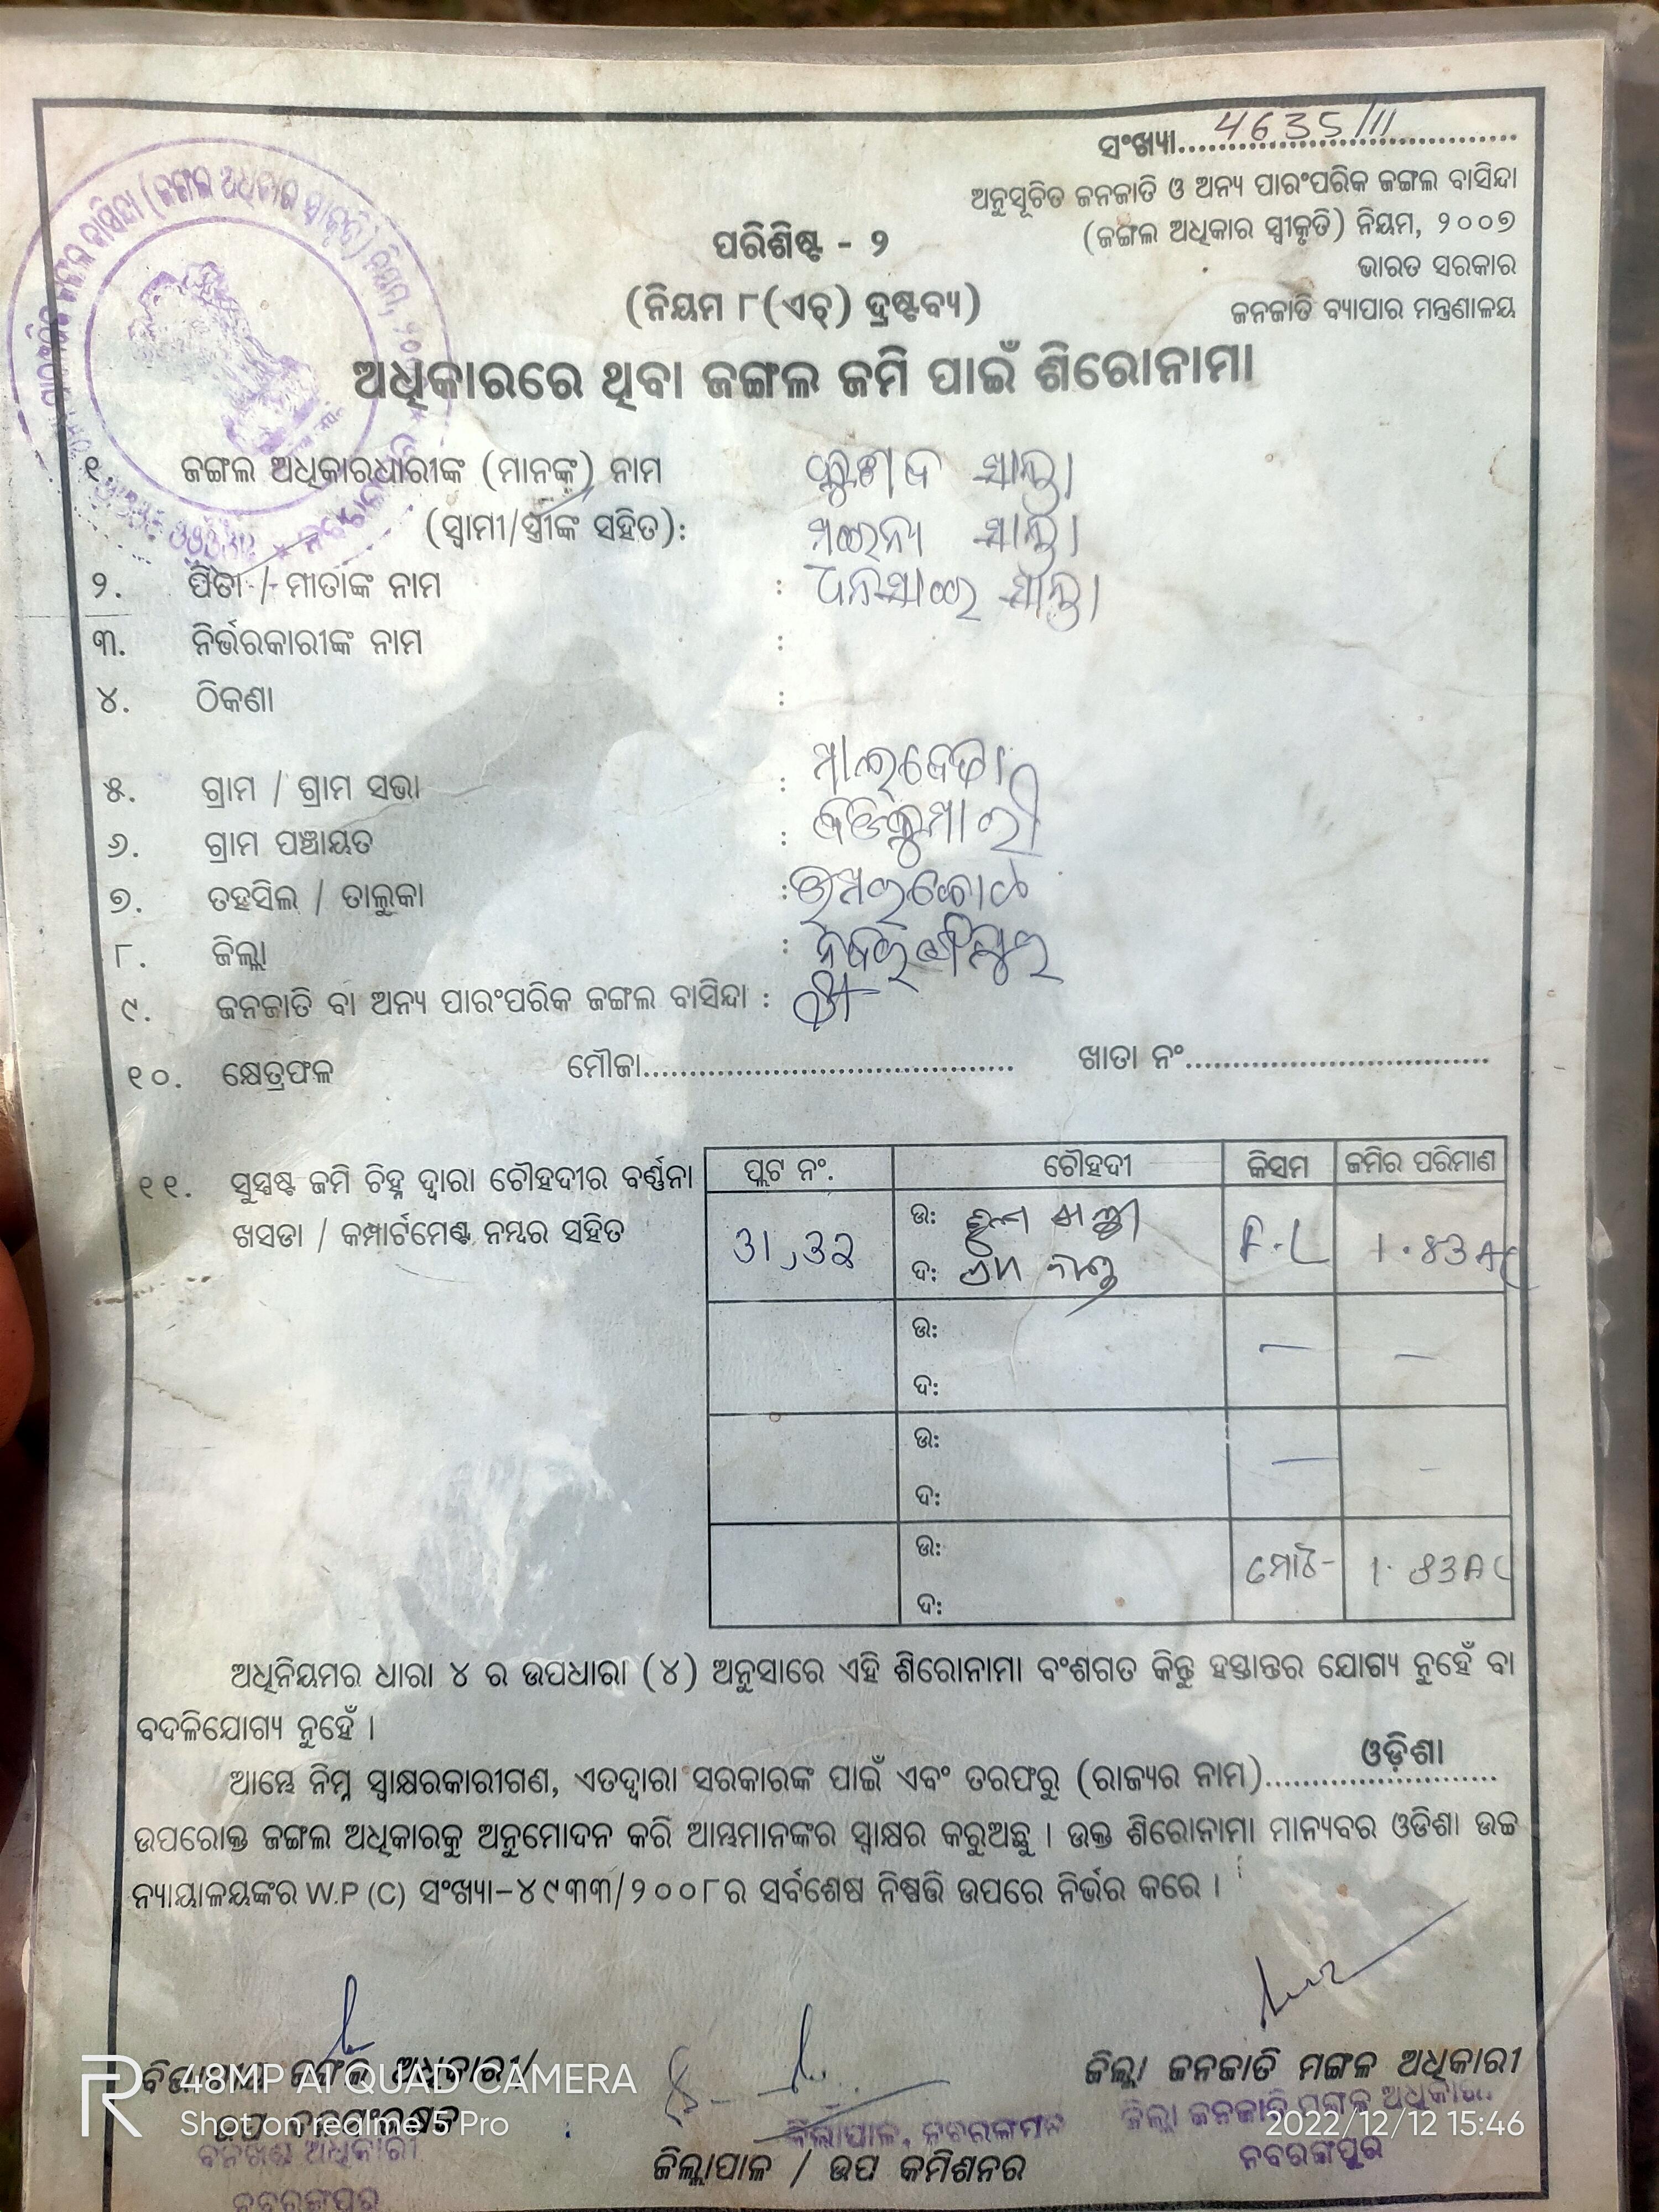 ସଂଖ୍ୟା.......4635/111.......
ଅନୁସୂଚିତ ଜନଜାତି ଓ ଅନ୍ୟ ପାରଂପରିକ ଜଙ୍ଗଲ ବାସିନ୍ଦା
(ଜଙ୍ଗଲ ଅଧିକାର ସ୍ୱୀକୃତି) ନିୟମ, ୨୦୦୭
ଭାରତ ସରକାର
ଜନଜାତି ବ୍ୟାପାର ମନ୍ତ୍ରଣାଳୟ
ପରିଶିଷ୍ଟ - ୨
(ନିୟମ ୮(ଏଚ୍) ଦ୍ରଷ୍ଟବ୍ୟ)
ଅଧିକାରରେ ଥିବା ଜଙ୍ଗଲ ଜମି ପାଇଁ ଶିରୋନାମା
୧. ଜଙ୍ଗଲ ଅଧିକାରଧାରୀଙ୍କ (ମାନଙ୍କ) ନାମ
(ସ୍ୱାମୀ/ସ୍ତ୍ରୀଙ୍କ ସହିତ):
୨. ପିତା / ମାତାଙ୍କ ନାମ :
୩. ନିର୍ଭରକାରୀଙ୍କ ନାମ :
୪. ଠିକଣା :
୫. ଗ୍ରାମ / ଗ୍ରାମ ସଭା :
୬. ଗ୍ରାମ ପଞ୍ଚାୟତ :
୭. ତହସିଲ / ତାଲୁକା : ଉମରକୋଟ
୮. ଜିଲ୍ଲା : ନବରଙ୍ଗପୁର
୯. ଜନଜାତି ବା ଅନ୍ୟ ପାରଂପରିକ ଜଙ୍ଗଲ ବାସିନ୍ଦା :
୧୦. କ୍ଷେତ୍ରଫଳ ମୌଜା.................... ଖାତା ନଂ....................
୧୧. ସୁସ୍ପଷ୍ଟ ଜମି ଚିହ୍ନ ଦ୍ୱାରା ଚୌହଦୀର ବର୍ଣ୍ଣନା
ଖସଡା / କମ୍ପାର୍ଟମେଣ୍ଟ ନମ୍ବର ସହିତ
ପ୍ଲଟ ନଂ. ଚୌହଦୀ କିସମ ଜମିର ପରିମାଣ
ଉ:
ଦ:
F.L
ଉ:
ଦ:
ଉ:
ଦ:
ଉ:
ଦ:
ମୋଟ-
ଅଧିନିୟମର ଧାରା ୪ ର ଉପଧାରା (୪) ଅନୁସାରେ ଏହି ଶିରୋନାମା ବଂଶଗତ କିନ୍ତୁ ହସ୍ତାନ୍ତର ଯୋଗ୍ୟ ନୁହେଁ ବା
ବଦଳିଯୋଗ୍ୟ ନୁହେଁ ।
ଆମ୍ଭେ ନିମ୍ନ ସ୍ୱାକ୍ଷରକାରୀଗଣ, ଏତଦ୍ୱାରା ସରକାରଙ୍କ ପାଇଁ ଏବଂ ତରଫରୁ (ରାଜ୍ୟର ନାମ).......ଓଡ଼ିଶା.......
ଉପରୋକ୍ତ ଜଙ୍ଗଲ ଅଧିକାରକୁ ଅନୁମୋଦନ କରି ଆମ୍ଭମାନଙ୍କର ସ୍ୱାକ୍ଷର କରୁଅଛୁ । ଉକ୍ତ ଶିରୋନାମା ମାନ୍ୟବର ଓଡିଶା ଉଚ୍ଚ
ନ୍ୟାୟାଳୟଙ୍କର W.P (C) ସଂଖ୍ୟା-୪୯୩୩/୨୦୦୮ର ସର୍ବଶେଷ ନିଷ୍ପତ୍ତି ଉପରେ ନିର୍ଭର କରେ ।
ଜଙ୍ଗଲ ଅଧିକାରୀ/
ବନଖଣ୍ଡ ଅଧିକାରୀ
ନବରଙ୍ଗପୁର
ଜିଲ୍ଲାପାଳ, ନବରଙ୍ଗପୁର
ଜିଲ୍ଲାପାଳ / ଉପ କମିଶନର
ଜିଲ୍ଲା ଜନଜାତି ମଙ୍ଗଳ ଅଧିକାରୀ
ଜିଲ୍ଲା ଜନଜାତି ମଙ୍ଗଳ ଅଧିକାରୀ
ନବରଙ୍ଗପୁର
48MP AI QUAD CAMERA
Shot on realme 5 Pro
2022/12/12 15:46